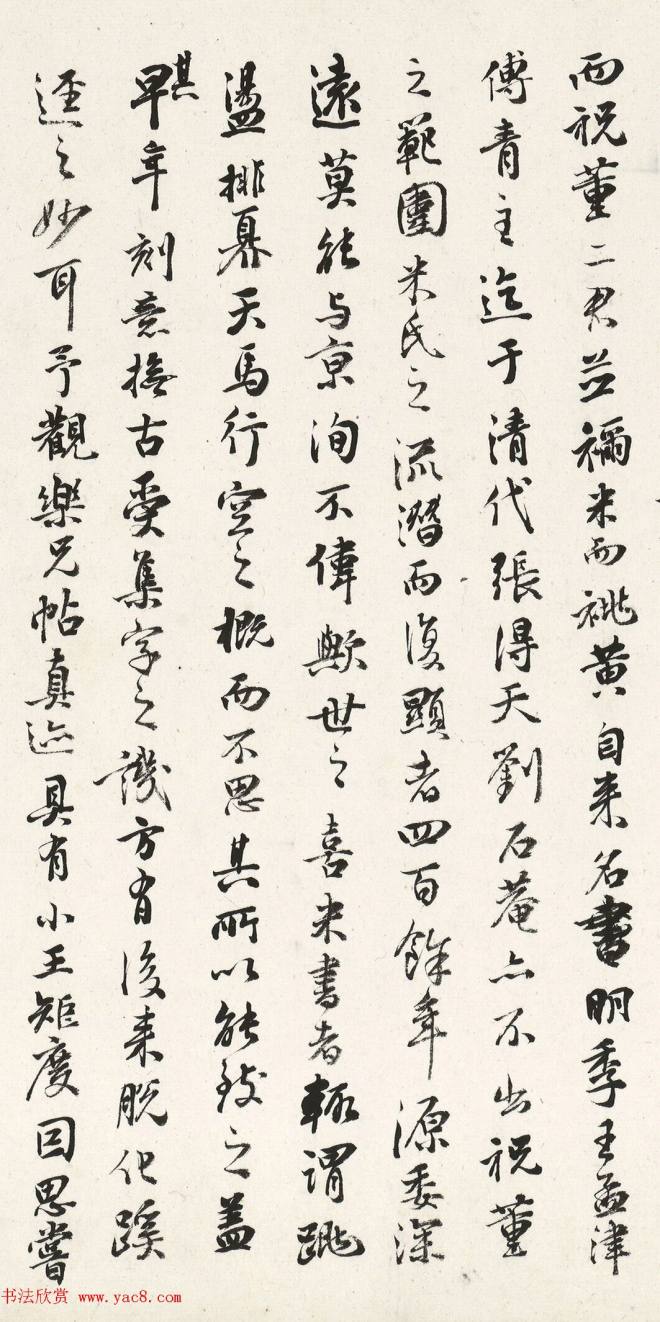 而祝董二君並禰米而祧黃自來名書明季王孟津
傅青主迄于清代張得天劉石菴亦不出祝董
之範圍米氏之流潛而復顯者四百餘年源委深
遠莫能与京洵不偉歟世之喜米書者輒謂跳
盪排奡天馬行空之概而不思其所以能致之蓋
其早年刻意撫古受集字之譏方有後來脫化蹊
逕之妙耳予觀樂兄帖真迹具有小王矩度因思嘗
书法欣赏 www.yac8.com